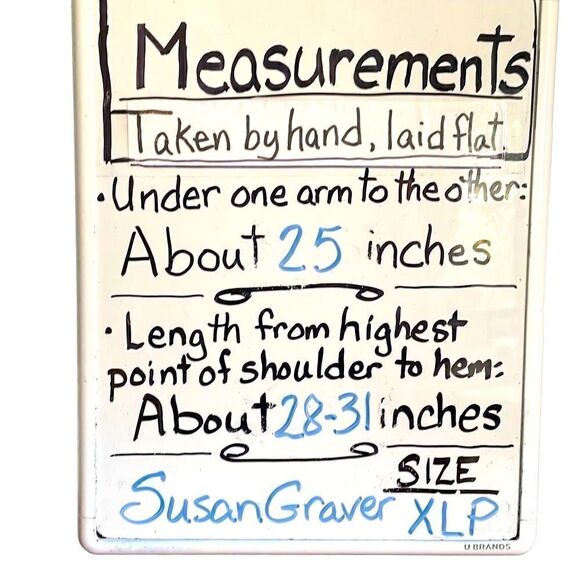 Measurements
Taken by hand, laid flat.
·Under one arm to the other:
About 25 inches
·Length from highest
point of shoulder to hem:
About 28-31 inches
SIZE
Susan Graver XLP
U BRANDS